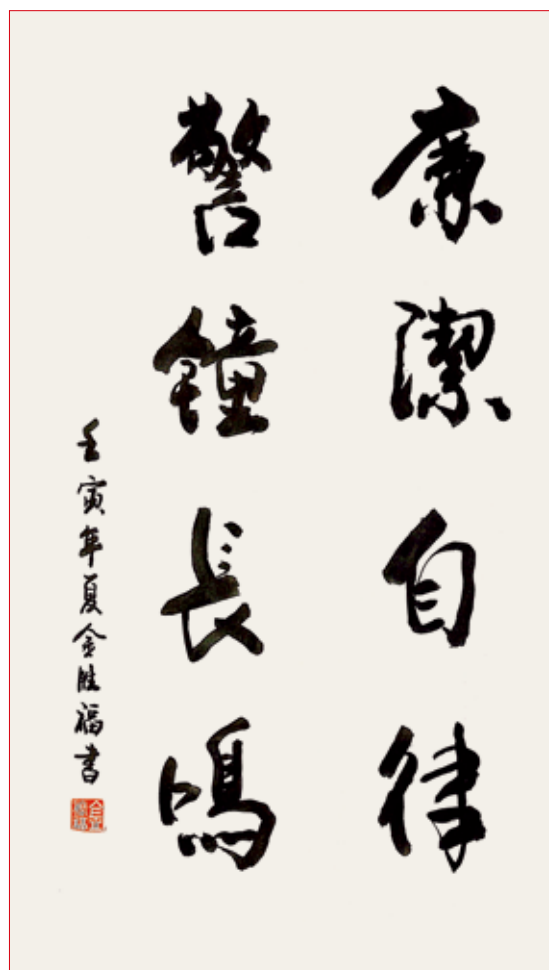 廉潔自律
警鐘長鳴
壬寅年夏金勝福書